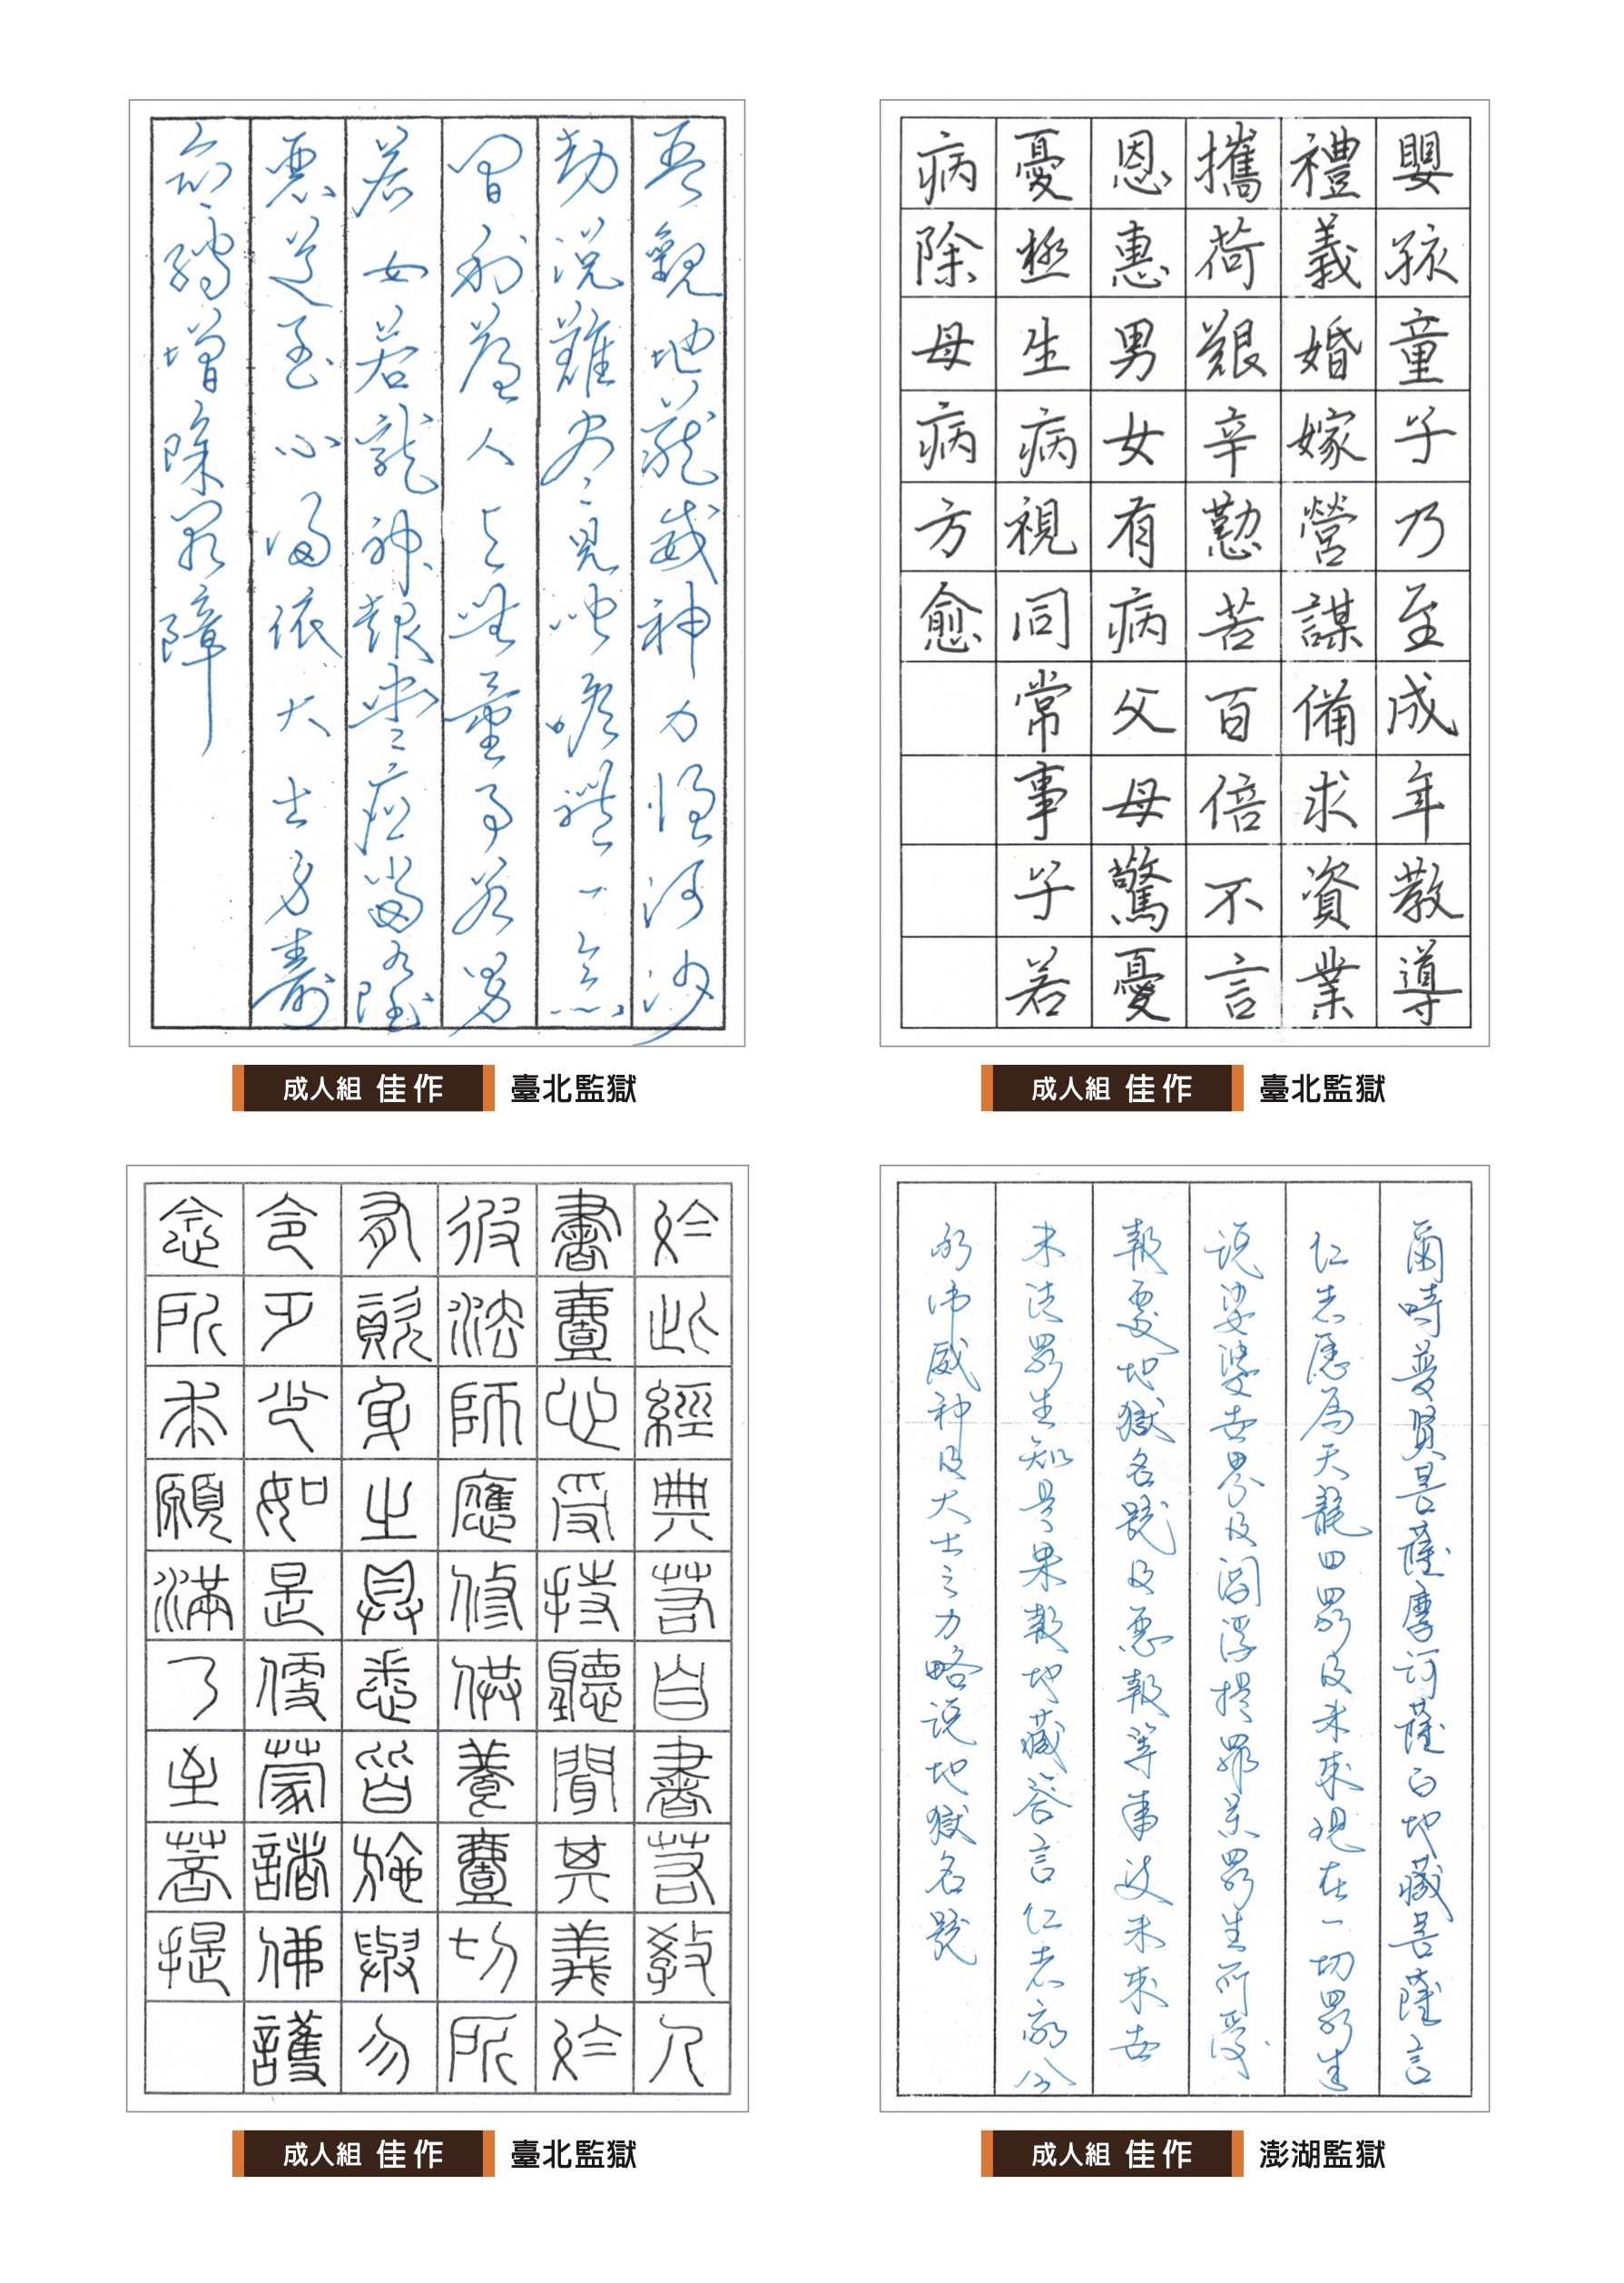 吾觀地藏威神力恒河沙
劫說難盡見聞瞻禮一念
間利益人天無量事若男
若女若龍神報盡應當墮
惡道至心歸依大士身壽
命轉增除罪障
成人組 佳作 臺北監獄
嬰孩童子乃至成年教導
禮義婚嫁營謀備求資業
攜荷艱辛懃苦百倍不言
恩惠男女有病父母驚憂
憂極生病視同常事子若
病除母病方愈
成人組 佳作 臺北監獄
於此經典若自書若教人
書壹心受持聽聞其義於
彼法師應修供養壹切所
有資身之具悉皆施與勿
令乏少如是便蒙諸佛護
念所求願滿乃至菩提
成人組 佳作 臺北監獄
爾時普賢菩薩摩訶薩白地藏菩薩言
仁者願為天龍四眾及未來現在一切眾生
說娑婆世界及閻浮提罪業眾生所受
報處地獄名號及惡報等事使未來世
末法眾生知是果報地藏答言仁者我今
承佛威神及大士之力略說地獄名號
成人組 佳作 澎湖監獄